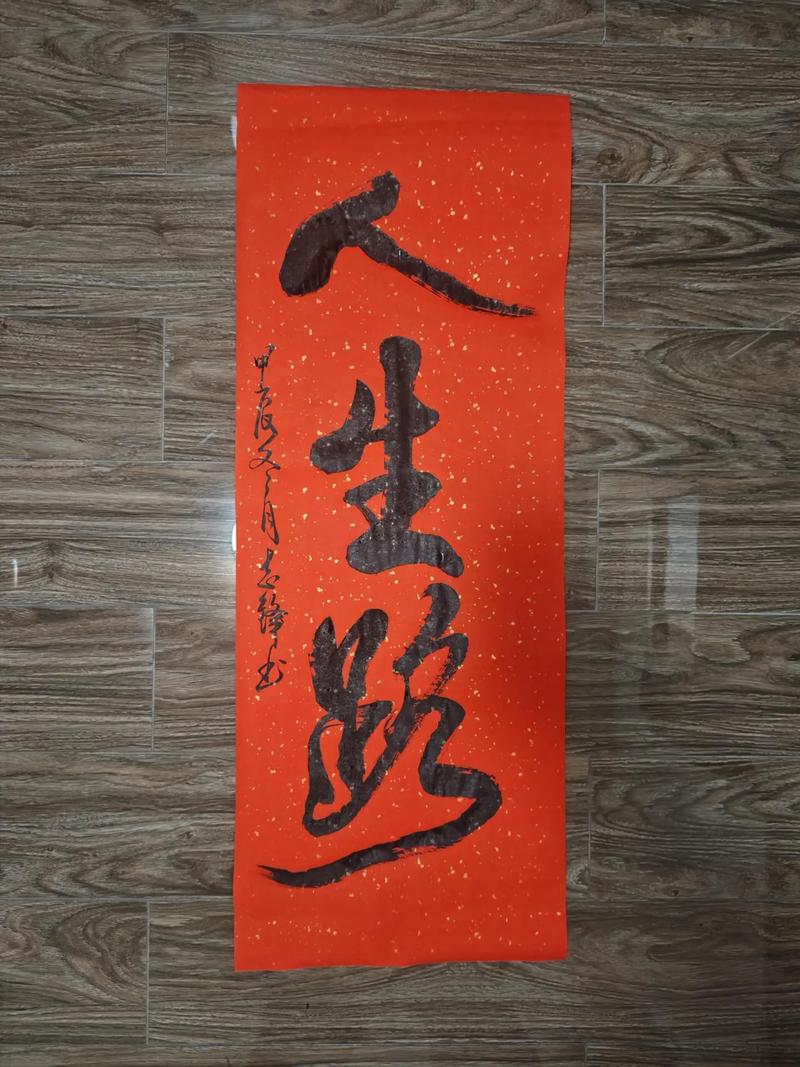 人生路
甲辰冬月志鋒书